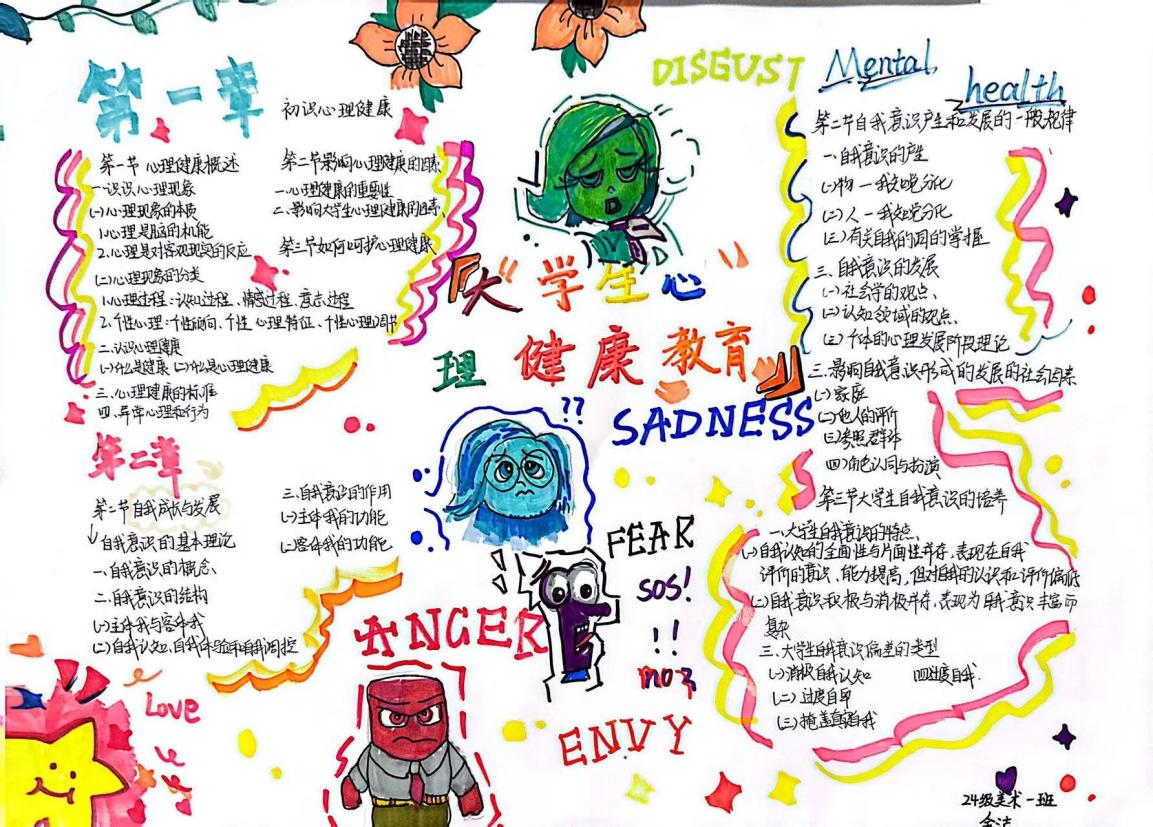 第一章
初识心理健康
第一节 心理健康概述
一识识心理现象
(一)心理现象的本质
1.心理是脑的机能
2.心理是对客观现实的反应
(二)心理现象的分类
1.心理过程:认知过程、情感过程、意志过程
2.个性心理:个性倾向、个性心理特征、个性心理调节
二.认识心理健康
(一)什么是健康 (二)什么是心理健康
三.心理健康的标准
四.异常心理和行为
第二节影响心理健康的因素
一.心理健康的重要性
二.影响大学生心理健康的因素
第三节如何呵护心理健康
第二章
第一节自我成长与发展
自我意识的基本理论
一.自我意识的概念
二.自我意识的结构
(一)主体我与客体我
(二)自我认知、自我体验和自我调控
三.自我意识的作用
(一)主体我的功能
(二)客体我的功能
Love
DISGUST
『大学生心
理健康教育』
SADNESS
??
FEAR
SOS!
!!
no?
ANGER
ENVY
Mental
health
第二节自我意识产生和发展的一般规律
一.自我意识的产生
(一)物一我知觉分化
(二)人一我知觉分化
(三)有关自我的词的掌握
三.自我意识的发展
(一)社会学的观点、
(二)认知领域的观点、
(三)个体的心理发展阶段理论
三.影响自我意识形成的发展的社会因素
(一)家庭
(二)他人的评价
(三)参照群体
(四)角色认同与扮演
第三节大学生自我意识的培养
一.大学生自我意识的特点、
(一)自我认知的全面性与片面性并存,表现在自我
评价的意识、能力提高,但对自我的认识和评价偏低
(二)自我意识积极与消极并存,表现为自我意识丰富而
复杂
三.大学生自我意识偏差的类型
(一)消极自我认知 (四)过度自我.
(二)过度自卑
(三)掩盖真实自我
24级美术一班